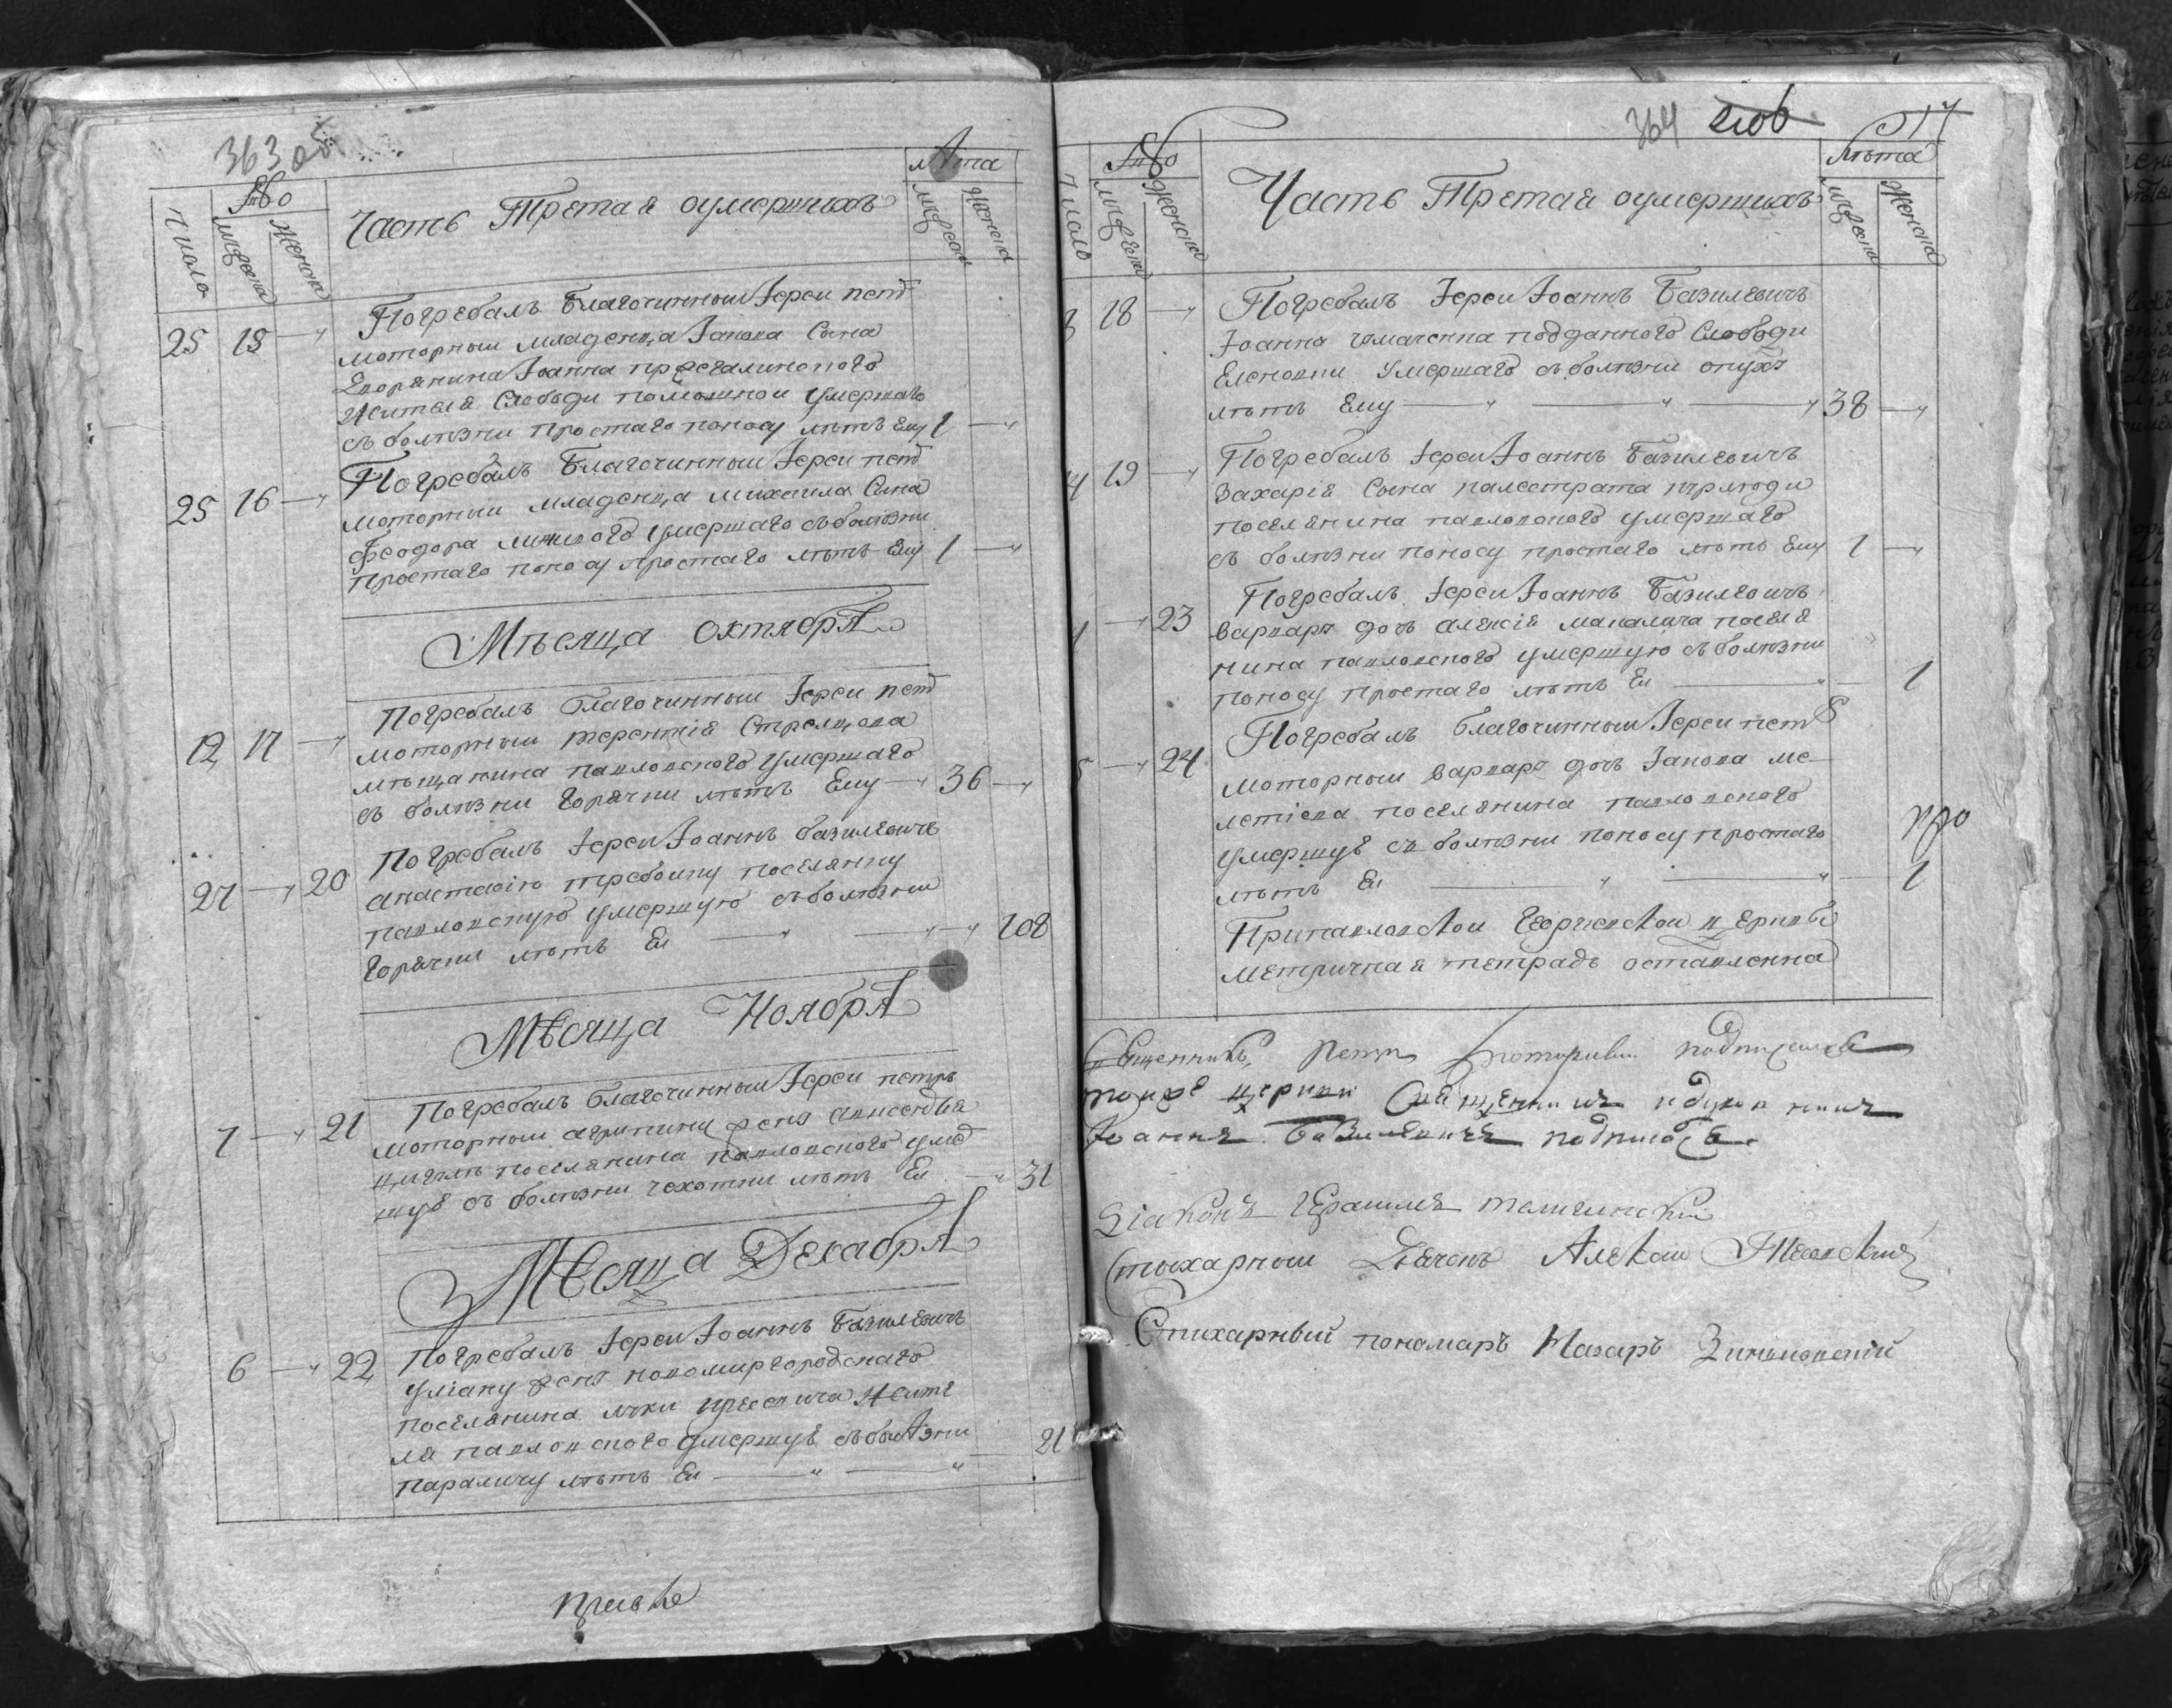 363 об
Число
Мужеска
Женска
Часть Третая оумершихъ
лѣта
Мужеска
Женска
25 15 Погребалъ Благочинныи Іереи петръ
моторныи младенца Іакова Сына
Дворянина Іоанна
Жителя Слободи помошнои Умершаго
съ болѣзни простаго поносу лѣтъ Ему 1
25 16 Погребалъ Благочинныи Іереи петръ
моторныи младенца михаила Сина
Феодора умершаго съ болѣзни
простаго поносу простаго лѣтъ Ему 1
Мѣсяца октября
12 17 Погребалъ благочинныи Іереи петръ
моторныи терентія Стрелцова
мѣщанина павловского умершаго
съ болѣзни горячки лѣтъ Ему 36
27 20 Погребалъ Іереи Іоаннъ базилевичъ
анастасію поселянку
павловскую умершую съ болѣзни
горячки лѣтъ Еи 108
Мѣсяца Ноября
7 21 Погребалъ благочинныи Іереи петръ
моторныи агрипину жену
поселянина павловского умер
шую съ болѣзни чахотки лѣтъ Еи 31
Мѣсяца Декабря
6 22 Погребалъ Іереи Іоаннъ Базилевичъ
уліану жену новомиргородскаго
поселянина луки жите
ля павловского умершую съ болѣзни
параличу лѣтъ Еи 21
364
17
Число
Мужеска
Женска
Часть Третая оумершихъ
лѣта
Мужеска
Женска
18 Погребалъ Іереи Іоаннъ Базилевичъ
Іоанна подданного Слободи
Еленовки Умершаго съ болѣзни опухъ
лѣтъ Ему 38
19 Погребалъ Іереи Іоаннъ Базилевичъ
Захарія Сына
поселянина павловского умершаго
съ болѣзни поносу простаго лѣтъ Ему 1
23 Погребалъ Іереи Іоаннъ Базилевичъ
варвару дочь алексія поселя
нина павловского умершую съ болѣзни
поносу простаго лѣтъ Еи 1
24 Погребалъ благочинныи Іереи петръ
моторныи варвару дочь Іакова ме
летіева поселянина павловского
умершую съ болѣзни поносу простаго
лѣтъ Еи 1
При павловскои Георгиевскои церквѣ
метричная тетрадь оставленна
Священникъ Петръ Моторныи подписался
тояже церкви Священникъ
Іоаннъ Базилевичъ подписался
Діаконъ Герасимъ
Стихарныи Дячокъ Алекси
Стихарный пономаръ Назаръ Зиньковскій